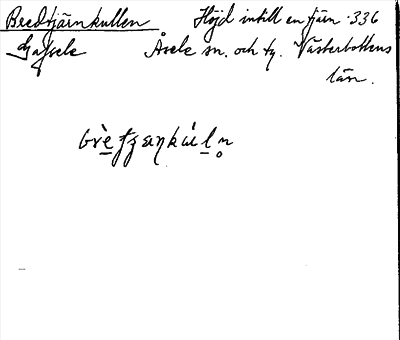 Bredtjärnkullen Höjd intill en tjärn. 336
Gafsele Åsele sn. och tg. Västerbottens
län.